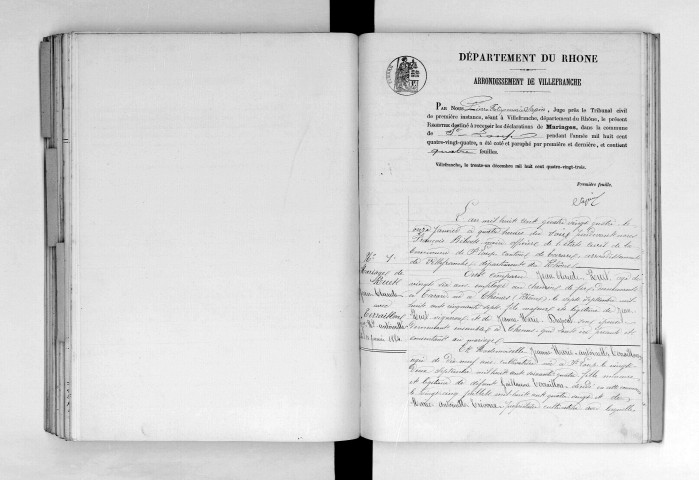 DÉPARTEMENT DU RHONE
ARRONDISSEMENT DE VILLEFRANCHE
PAR NOUS Pierre, Juge près le Tribunal civil
de première instance, séant à Villefranche, département du Rhône, le présent
REGISTRE destiné à recevoir les déclarations de Mariages, dans la commune
de St Loup pendant l'année mil huit cent
quatre-vingt-quatre, a été coté et paraphé par première et dernière, et contient
quatre feuilles.
Villefranche, le trente-un décembre mil huit cent quatre-vingt-trois.
Première feuille.
L'an mil huit cent quatre vingt quatre le
onze janvier à quatre heures du soir pardevant nous
François maire officier de l'état civil de la
commune de St Loup canton de arrondissement
de Villefranche département du Rhône
No 1
Mariage de
Jean Claude
avec
Terraillon
Jne Mie antoinette
janvier 1884
Ont comparu Jean Claude âgé de
vingt six ans employé au chemin de fer demeurant
à Tarare né à le sept septembre mil
huit cent cinquante sept fils majeur et légitime de
vigneron et de Jeanne Marie son épouse
demeurant ensemble à qui sont ici présents et
consentant au mariage
Et Mademoiselle Jeanne Marie antoinette Terraillon
agée de dix neuf ans cultivatrice née à St Loup le vingt
septembre mil huit cent soixante quatre fille mineure
et légitime de défunt Guillaume Terraillon décédé en cette commune
le vingt cinq juillet mil huit cent quatre vingt et de
Marie antoinette propriétaire cultivatrice avec laquelle